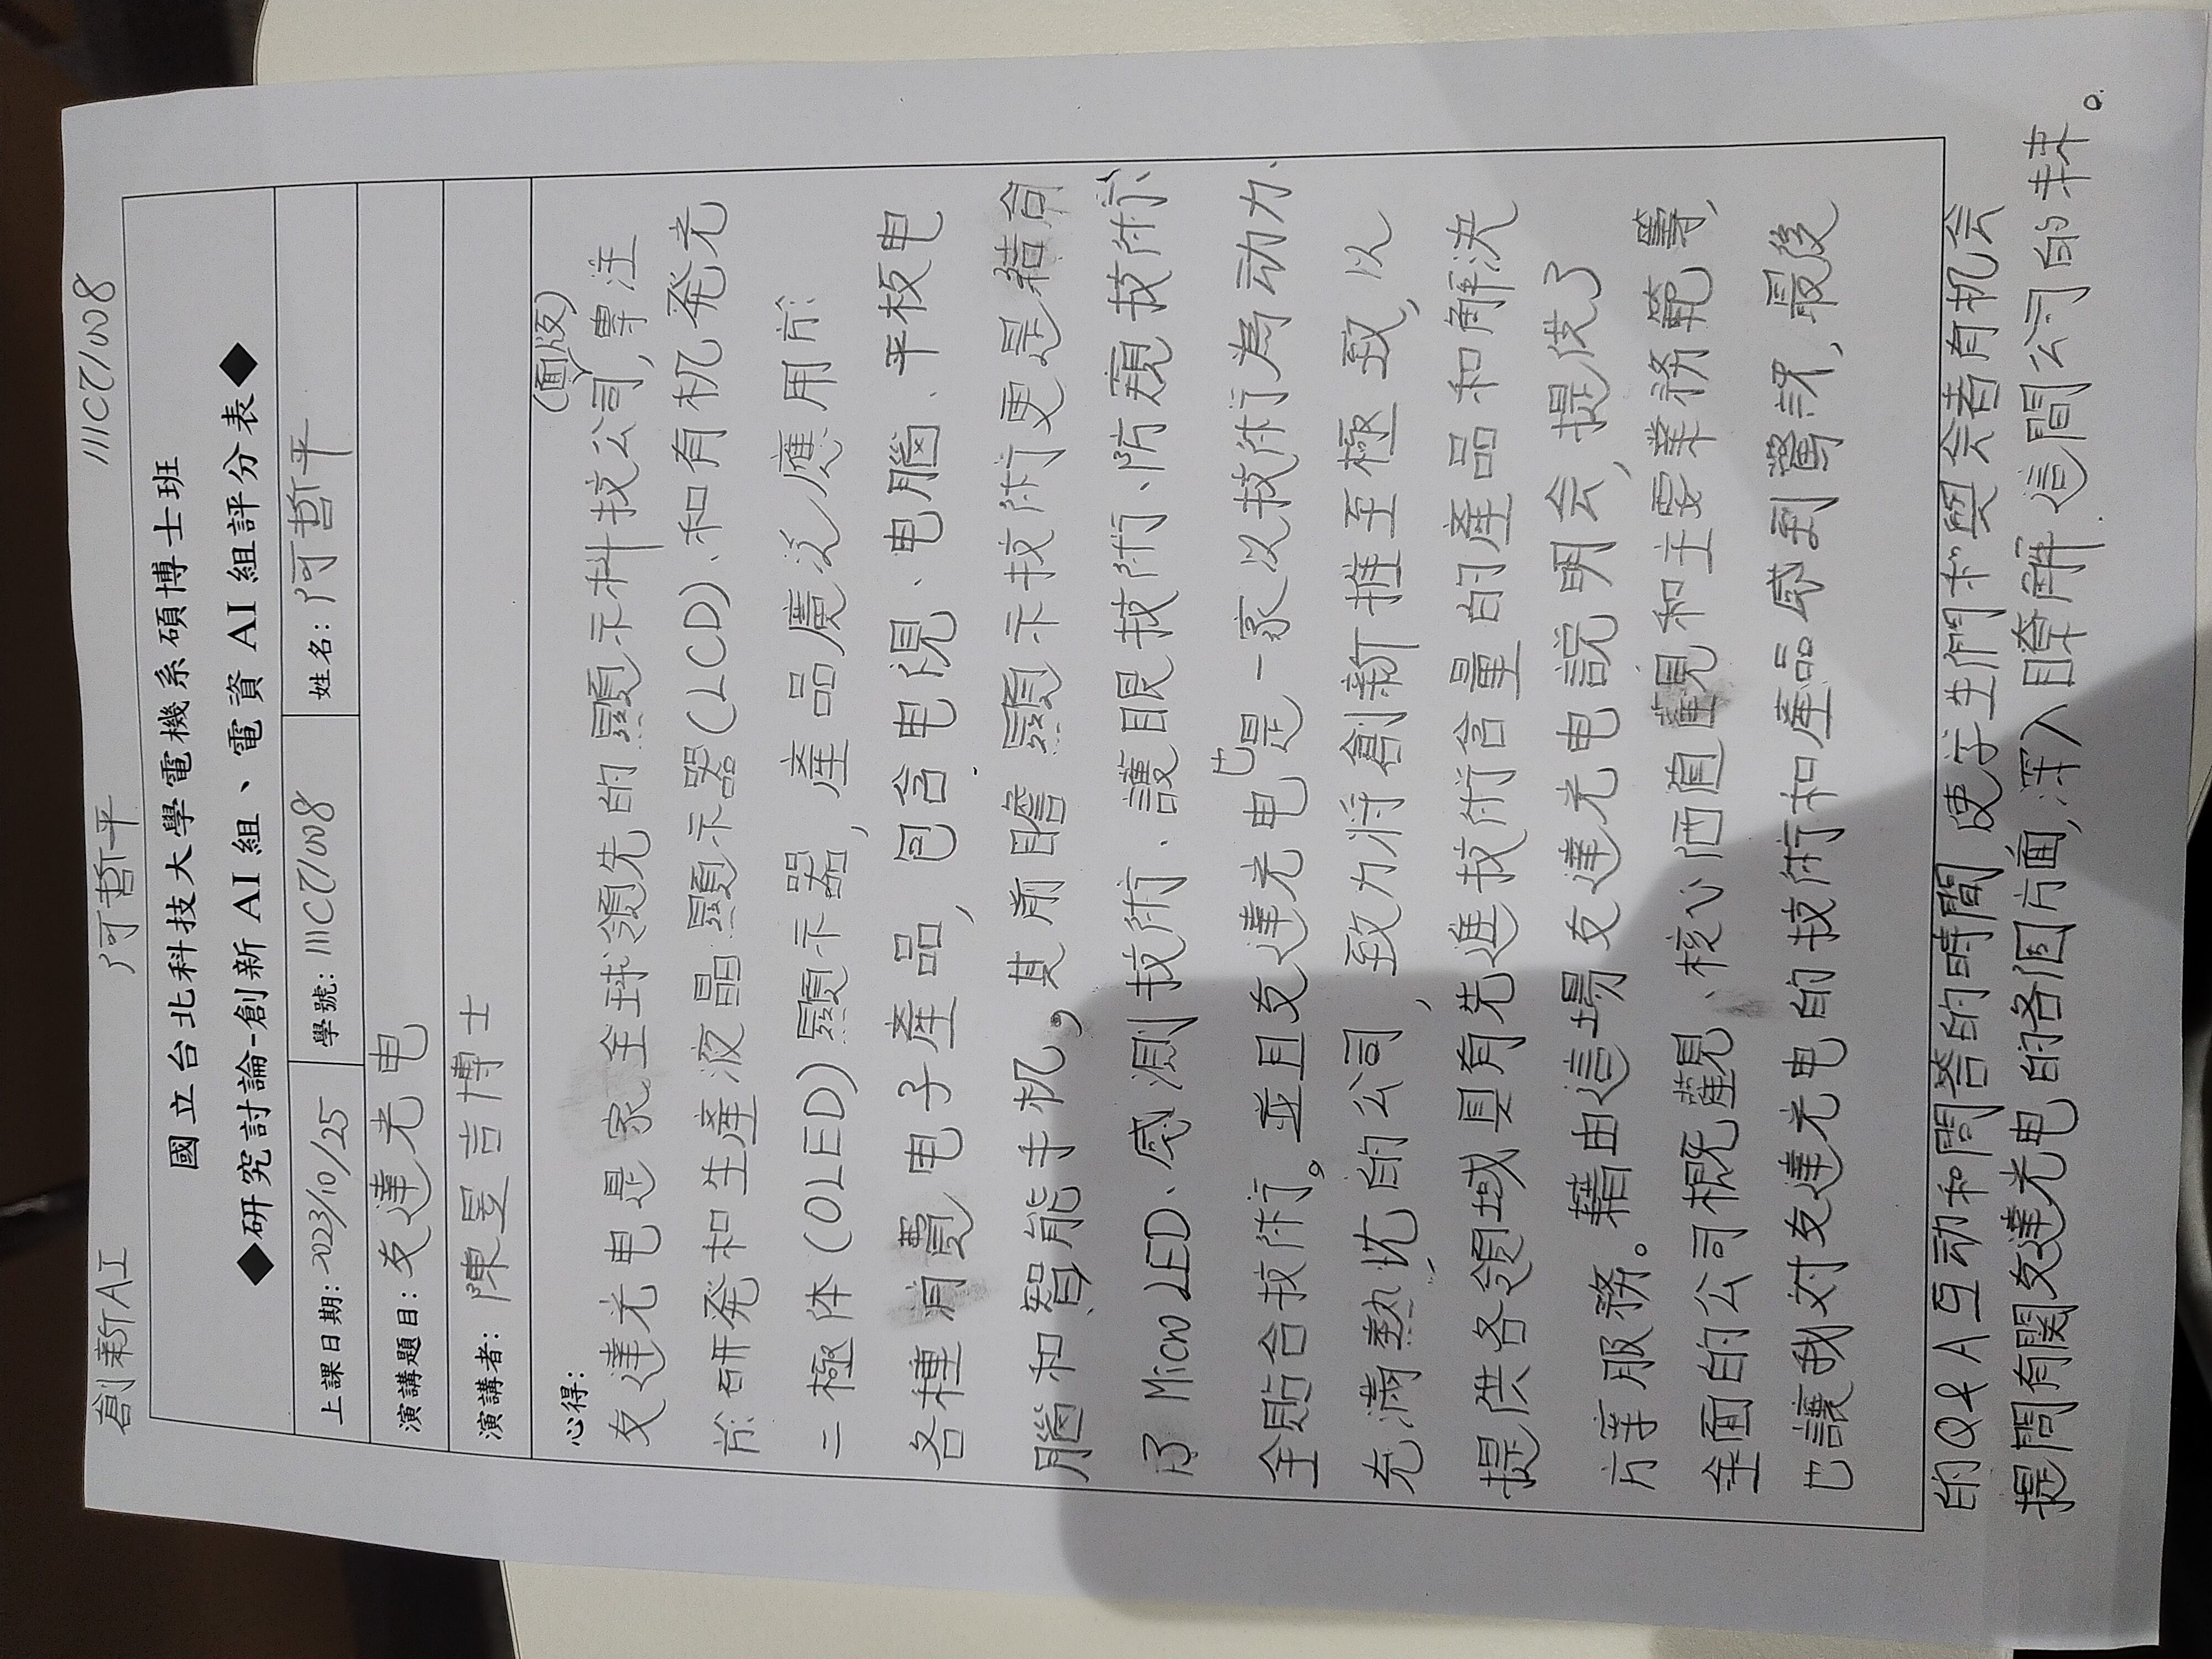 創新AI 阿哲平 111C71008
國立台北科技大學電機系碩博士班
◆研究討論-創新 AI 組、電資 AI 組評分表◆
上課日期: 2023/10/25 學號: 111C71008 姓名: 阿哲平
演講題目: 友達光电
演講者: 陳昱吉博士
心得:
(面版)
友達光电是家全球領先的顯示科技公司,專注
於研発和生產液晶顯示器(LCD)、和有机発光
二極体(OLED)顯示器,產品廣泛應用於
各種消費电子產品,包含电視、电腦、平板电
腦和智能手机。其前瞻顯示技術更是結合
了Micro LED、感測技術、護眼技術、防窺技術、
全貼合技術。並且友達光电也是一家以技術為动力、
充滿熱忱的公司,致力將創新推至極致,以
提供各領域具有先進技術含量的產品和解決
方案服務。藉由這場友達光电說明会,提供了
全面的公司概觀、核心価值觀和主要業務範籌,
也讓我対友達光电的技術和產品感到驚訝,最後
的Q&A互动和問答的時間 使学生們和與会者有机会
提問有関友達光电的各個方面,深入瞭解這間公司的未來。